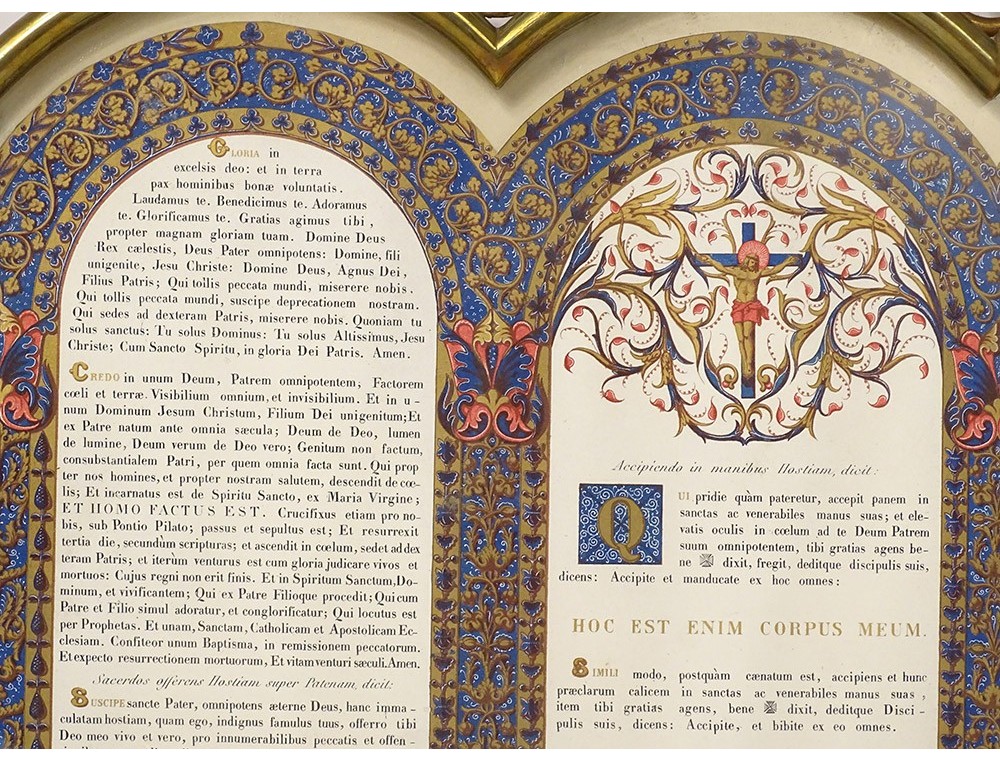 GLORIA in
excelsis deo: et in terra
pax hominibus bonæ voluntatis.
Laudamus te. Benedicimus te. Adoramus
te. Glorificamus te. Gratias agimus tibi,
propter magnam gloriam tuam. Domine Deus
Rex cælestis, Deus Pater omnipotens: Domine, fili
unigenite, Jesu Christe: Domine Deus, Agnus Dei,
Filius Patris; Qui tollis peccata mundi, miserere nobis.
Qui tollis peccata mundi, suscipe deprecationem nostram.
Qui sedes ad dexteram Patris, miserere nobis. Quoniam tu
solus sanctus: Tu solus Dominus: Tu solus Altissimus, Jesu
Christe; Cum Sancto Spiritu, in gloria Dei Patris. Amen.
CREDO in unum Deum, Patrem omnipotentem; Factorem
cœli et terræ. Visibilium omnium, et invisibilium. Et in u-
num Dominum Jesum Christum, Filium Dei unigenitum; Et
ex Patre natum ante omnia sæcula; Deum de Deo, lumen
de lumine, Deum verum de Deo vero; Genitum non factum,
consubstantialem Patri, per quem omnia facta sunt. Qui prop
ter nos homines, et propter nostram salutem, descendit de cœ-
lis; Et incarnatus est de Spiritu Sancto, ex Maria Virgine;
ET HOMO FACTUS EST. Crucifixus etiam pro no-
bis, sub Pontio Pilato; passus et sepultus est; Et resurrexit
tertia die, secundùm scripturas; et ascendit in cœlum, sedet ad dex
teram Patris; et iterùm venturus est cum gloria judicare vivos et
mortuos: Cujus regni non erit finis. Et in Spiritum Sanctum, Do-
minum, et vivificantem; Qui ex Patre Filioque procedit; Qui cum
Patre et Filio simul adoratur, et conglorificatur; Qui locutus est
per Prophetas. Et unam, Sanctam, Catholicam et Apostolicam Ec-
clesiam. Confiteor unum Baptisma, in remissionem peccatorum.
Et expecto resurrectionem mortuorum, Et vitam venturi sæculi. Amen.
Sacerdos offerens Hostiam super Patenam, dicit:
SUSCIPE sancte Pater, omnipotens æterne Deus, hanc imma-
culatam hostiam, quam ego, indignus famulus tuus, offerro tibi
Deo meo vivo et vero, pro innumerabilibus peccatis et offen-
Accipiendo in manibus Hostiam, dicit:
QUI pridie quàm pateretur, accepit panem in
sanctas ac venerabiles manus suas; et ele-
vatis oculis in cœlum ad te Deum Patrem
suum omnipotentem, tibi gratias agens be-
ne dixit, fregit, deditque discipulis suis,
dicens: Accipite et manducate ex hoc omnes:
HOC EST ENIM CORPUS MEUM.
SIMILI modo, postquàm cænatum est, accipiens et hunc
præclarum calicem in sanctas ac venerabiles manus suas,
item tibi gratias agens, bene dixit, deditque Disci-
pulis suis, dicens: Accipite, et bibite ex eo omnes.